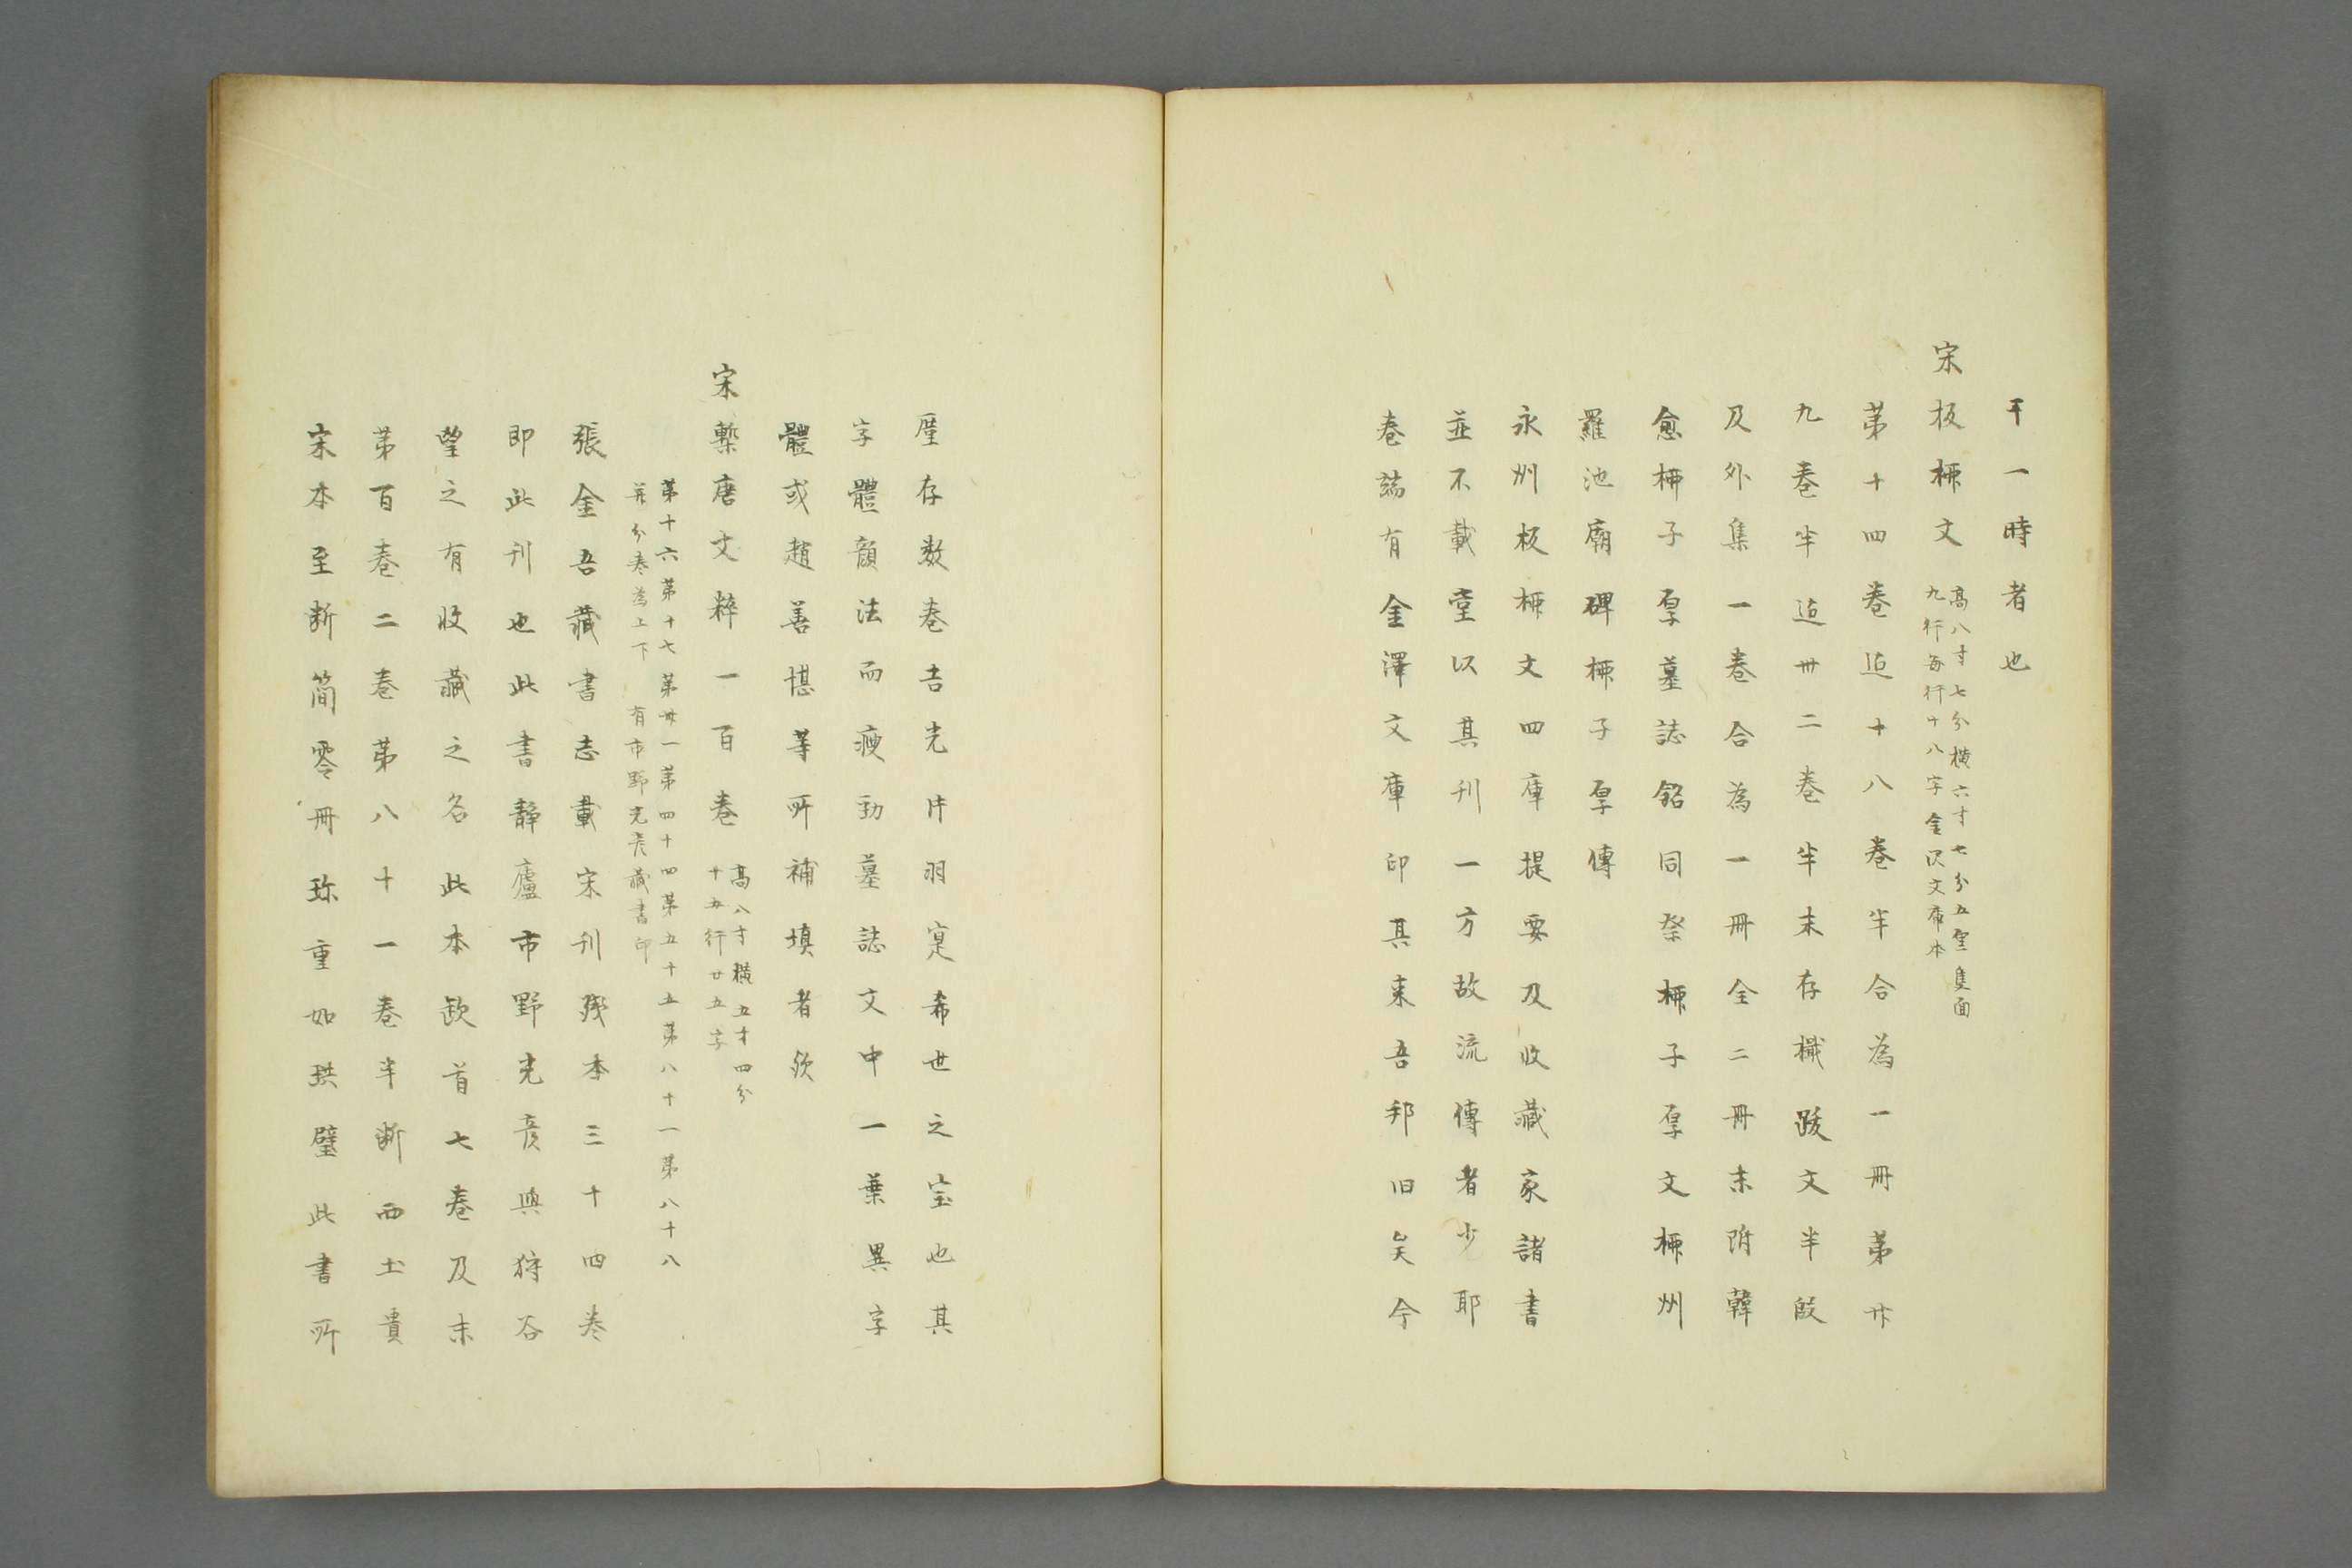 干一時者也
宋板柳文 高八寸七分横六寸七分五厘隻面
九行每行十八字金沢文庫本
苐十四巻迠十八巻半合為一冊苐廿
九巻半迠卅二巻半末存檝跋文半段
及外集一巻合為一冊全二冊末附韓
愈柳子厚墓誌銘同祭柳子厚文柳州
羅池廟碑柳子厚傳
永州板柳文四庫提要及收藏家諸書
並不載壹以其刊一方故流傳者少耶
巻端有金澤文庫印其来吾邦旧矣今
厪存数巻吉光片羽寔希世之宝也其
字體顔法而瘦勁墓誌文中一葉異字
體或趙善堪等所補填者欤
宋槧唐文粹一百巻 高八寸横五寸四分
十五行廿五字
苐十六苐十七苐卅一苐四十四苐五十五苐八十一苐八十八
并分巻為上下 有市野光彦藏書印
張金吾藏書志載宋刊殘本三十四巻
即此刊也此書静廬市野光彦與狩谷
望之有收藏之名此本欤首七巻及末
苐百巻二巻苐八十一巻半断而土貴
宋本至断簡零冊珎重如珙璧此書所